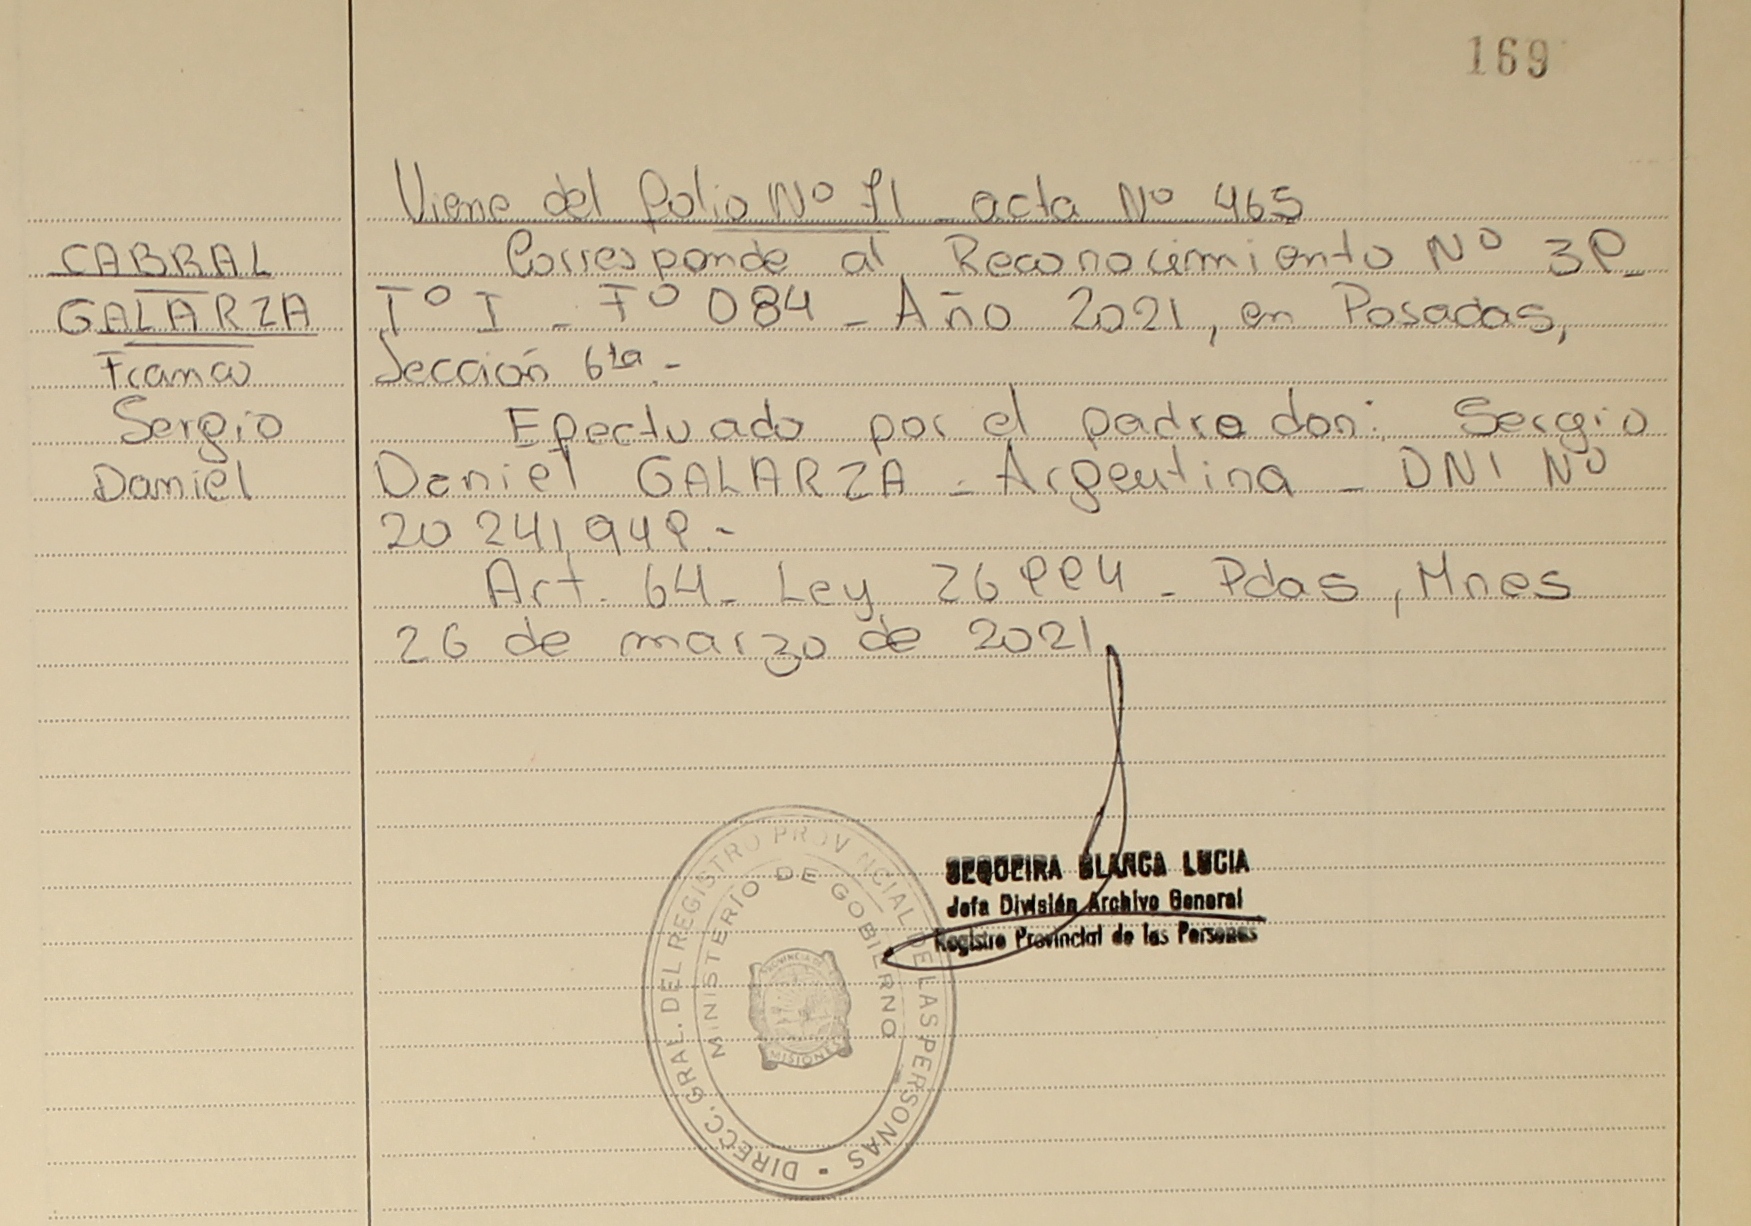 169
Viene del folio Nº 91 - acta Nº 465
CABRAL
GALARZA
Franco
Sergio
Daniel
Corresponde al Reconocimiento Nº 39-
Tº I - Fº 084 - Año 2021, en Posadas,
Sección 6ta.-
Efectuado por el padre don: Sergio
Daniel GALARZA - Argentina - DNI Nº
20 241,949.-
Art. 64 - Ley 26994 - Pdas, Mnes
26 de marzo de 2021
SEQUEIRA BLANCA LUCIA
Jefa División Archivo General
Registro Provincial de las Personas
DIRECC. GRAL. DEL REGISTRO PROVINCIAL DE LAS PERSONAS
MINISTERIO DE GOBIERNO
PROVINCIA DE
MISIONES